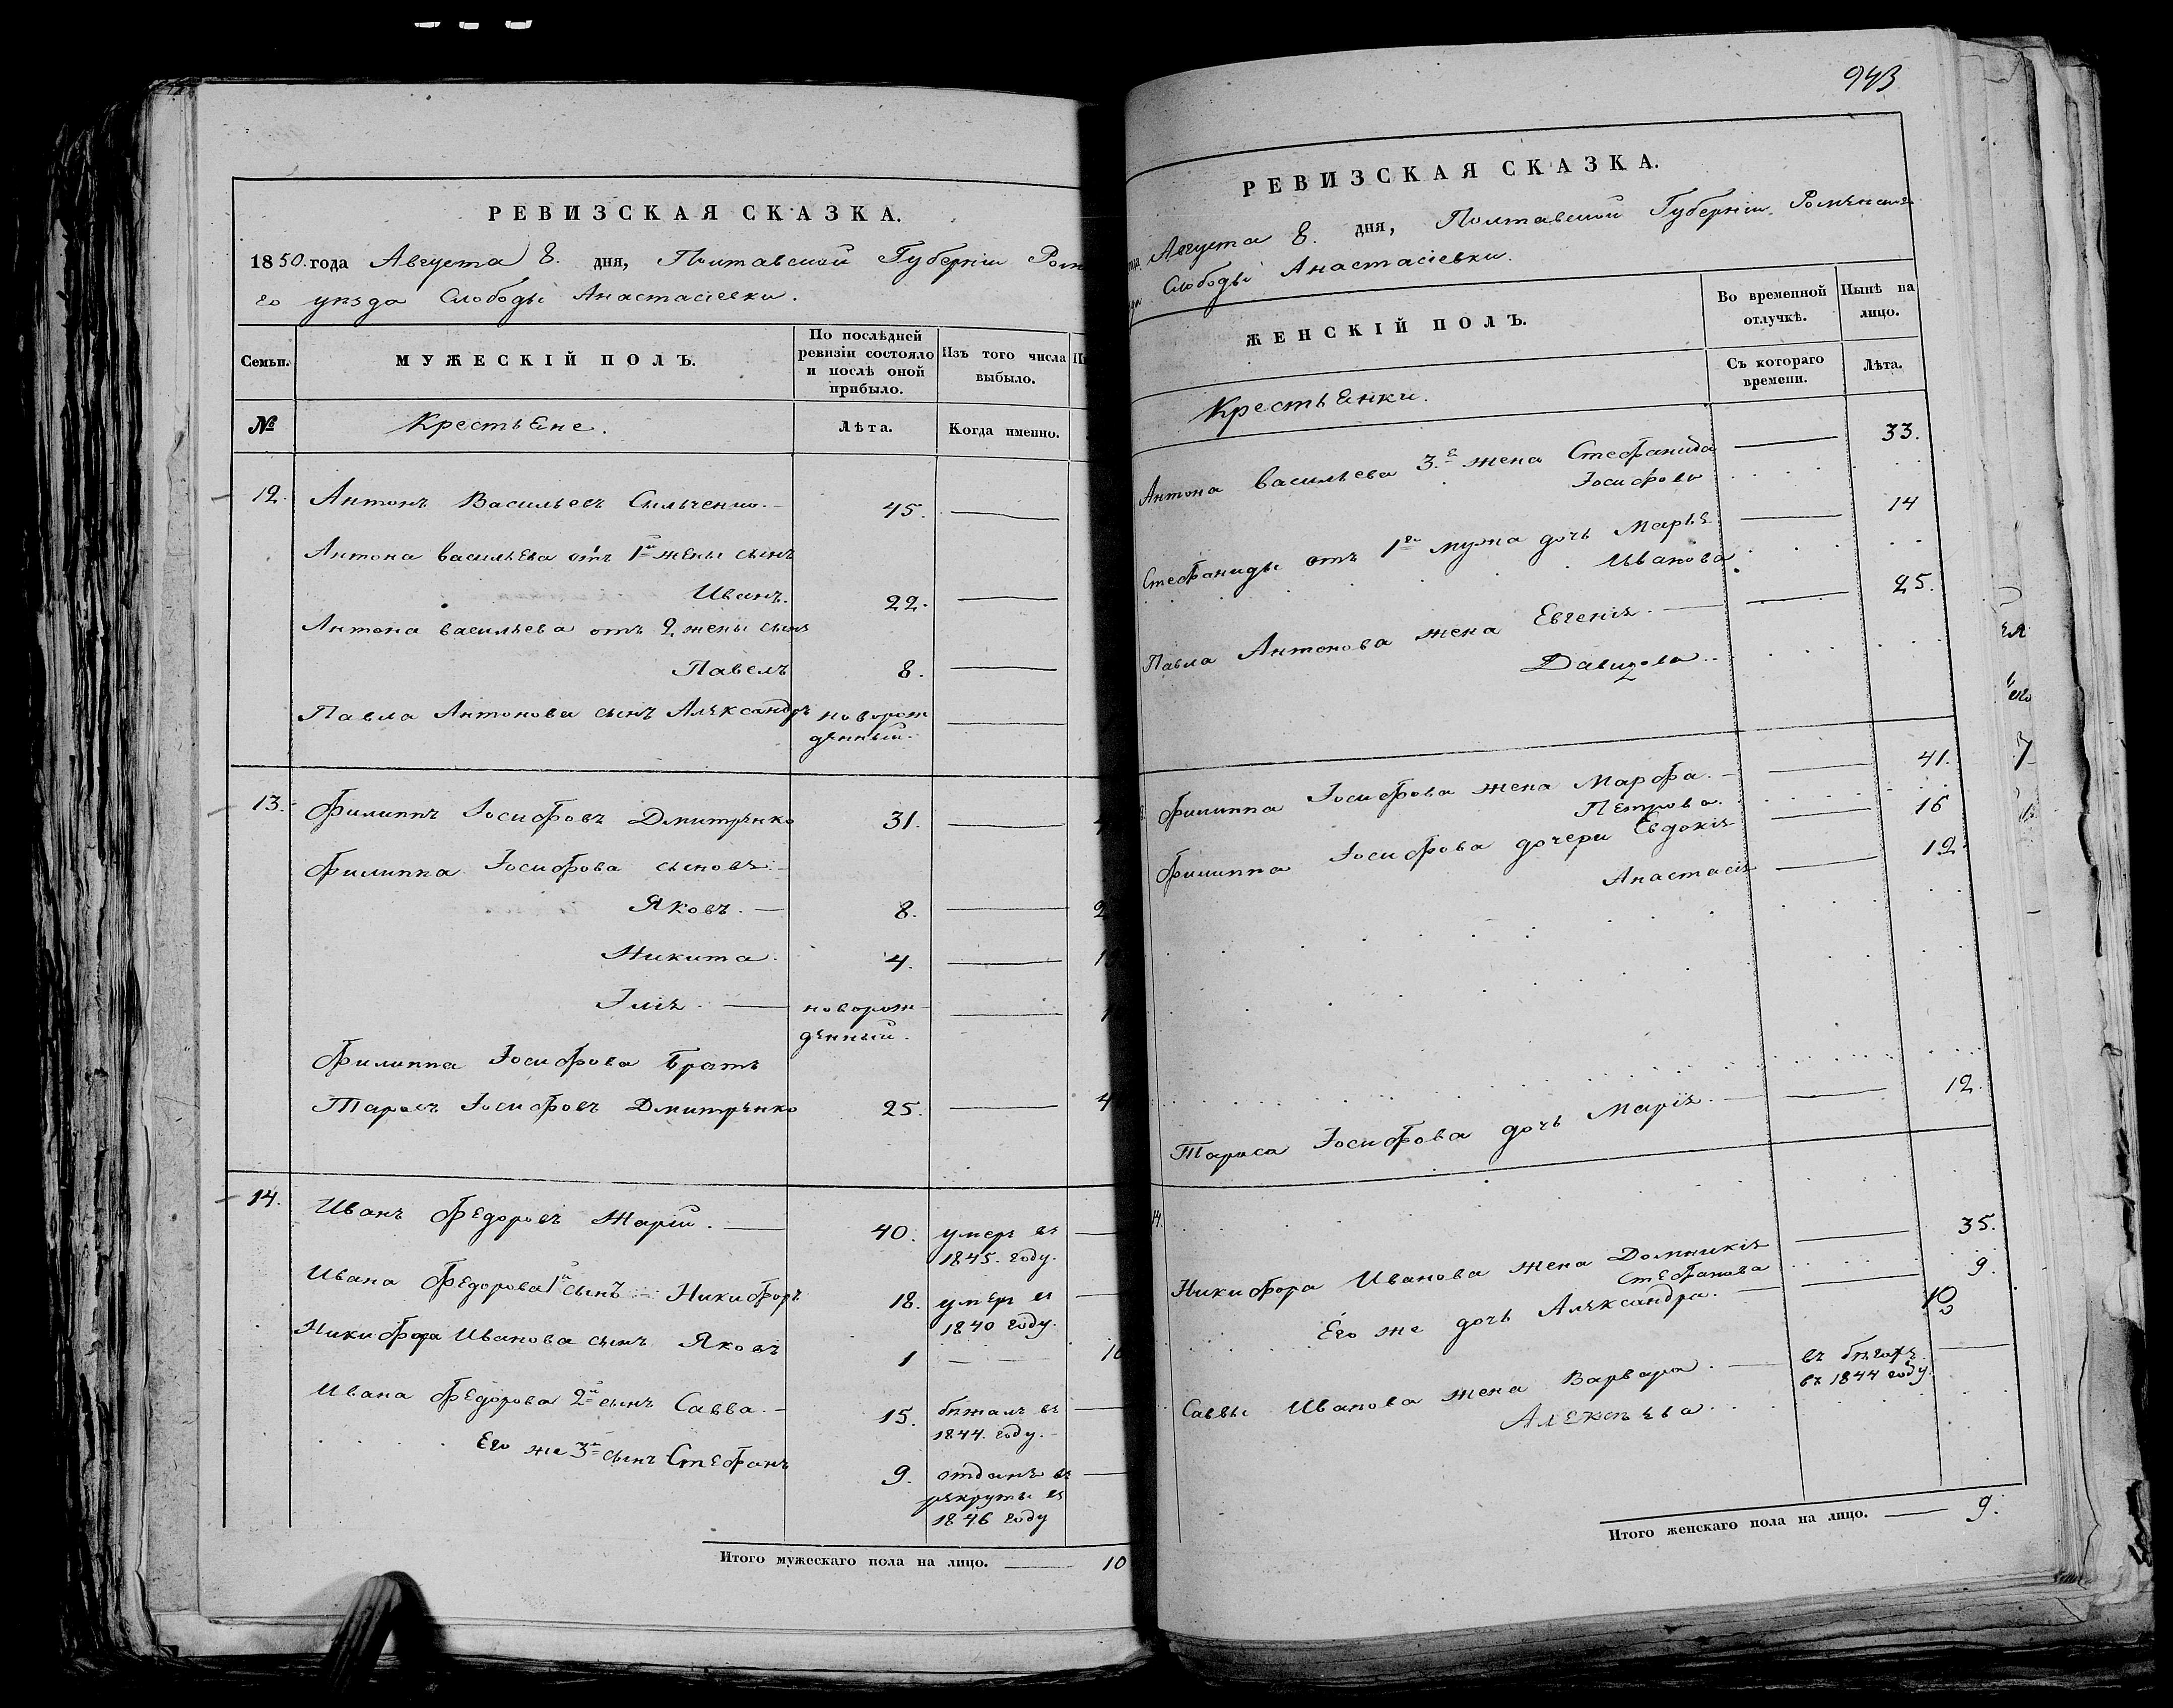 РЕВИЗСКАЯ СКАЗКА.
1850. года Августа 8. дня, Полтавской Губерніи Ром
го уѣзда Слободы Анастасіевки.
Семьи. МУЖЕСКІЙ ПОЛЪ. По послѣдней ревизіи состояло и послѣ оной прибыло. Изъ того числа выбыло.
№ Крестьяне. Лѣта. Когда именно.
12. Антонъ Васильевъ Сильченко. 45.
Антона Васильева отъ 1й жены сынъ
Иванъ. 22.
Антона Васильева отъ 2 жены сынъ
Павелъ 8.
Павла Антонова сынъ Александръ новорож
денный.
13. Филиппъ Іосифовъ Дмитренко 31.
Филиппа Іосифова сыновья
Яковъ. 8.
Никита. 4.
Илія. новорож
денный.
Филиппа Іосифова братъ
Тарасъ Іосифовъ Дмитренко 25.
14. Иванъ Федоровъ Жарій. 40. умеръ въ
1845. году.
Ивана Федорова 1й сынъ Никифоръ 18. умеръ въ
1840 году.
Никифора Иванова сынъ Яковъ 1
Ивана Федорова 2й сынъ Савва. 15. бѣжалъ въ
1844. году.
Его же 3й сынъ Стефанъ 9. отданъ въ
рекруты въ
1846 году
Итого мужескаго пола на лицо. 10
943
РЕВИЗСКАЯ СКАЗКА.
Августа 8. дня, Полтавской Губерніи Роменска
Слободы Анастасіевки.
ЖЕНСКІЙ ПОЛЪ. Во временной отлучкѣ. Нынѣ на лицо.
Крестьянки. Съ котораго времени. Лѣта.
Антона Васильева 3.я жена Стефанида 33.
Іосифова
Стефаниды отъ 1го мужа дочь Марья 14
Иванова
Павла Антонова жена Евгенія. 25.
Давидова.
Филиппа Іосифова жена Марфа. 41.
Петрова.
Филиппа Іосифова дочери Евдокія 16
Анастасія 12.
Тараса Іосифова дочь Марія. 12.
14.
Никифора Иванова жена Домникія 35.
Стефанова
Его же дочь Александра. 9.
10
Саввы Иванова жена Варвара. въ бѣгахъ
въ 1844 году
Алексѣева.
Итого женскаго пола на лицо. 9.